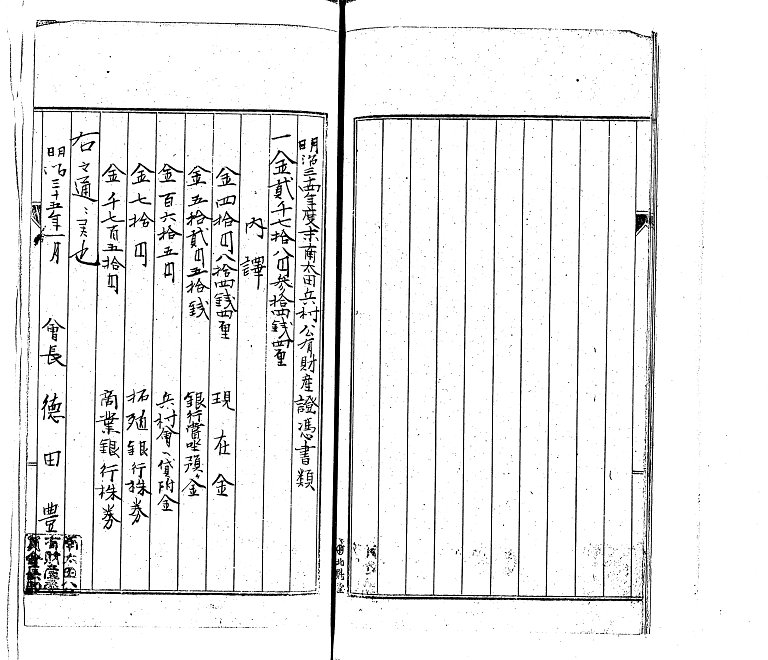 明治三十四年度末南太田兵村公有財産證憑書類
一金貳千七拾八円参拾四銭四厘
内譯
金四拾円八拾四銭四厘 現在金
金五拾貳円五拾銭 銀行當座預ヶ金
金百六拾五円 兵村會ヘ貸附金
金七拾円 拓殖銀行株券
金千七百五拾円 商業銀行株券
右之通ニ候也
明治三十五年一月 會長 德田豊